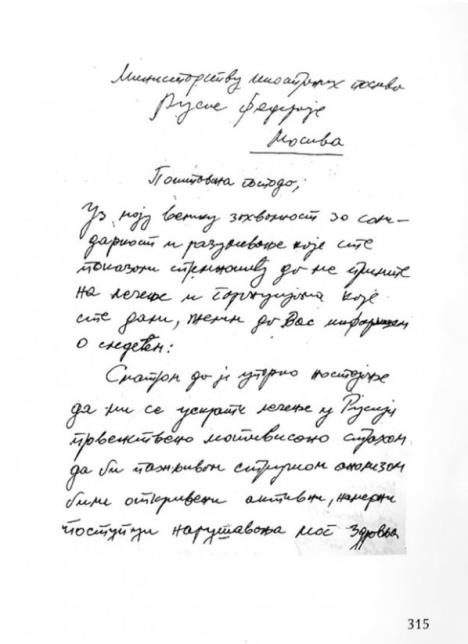 Министарству иностраних послова
Руске Федерације
Москва
Поштована господо,
Уз моју велику захвалност за соли-
дарност и разумевање које сте
показали спремношћу да ме примите
на лечење и гаранцијама које
сте дали, желим до Вас информишем
о следећем:
Сматрам да је упорно настојање
да ми се ускрати лечење у Русији
првенствено мотивисано страхом
да би пажљивом стручном анализом
били откривени активни, намерни
поступци нарушавања мог здравља
315